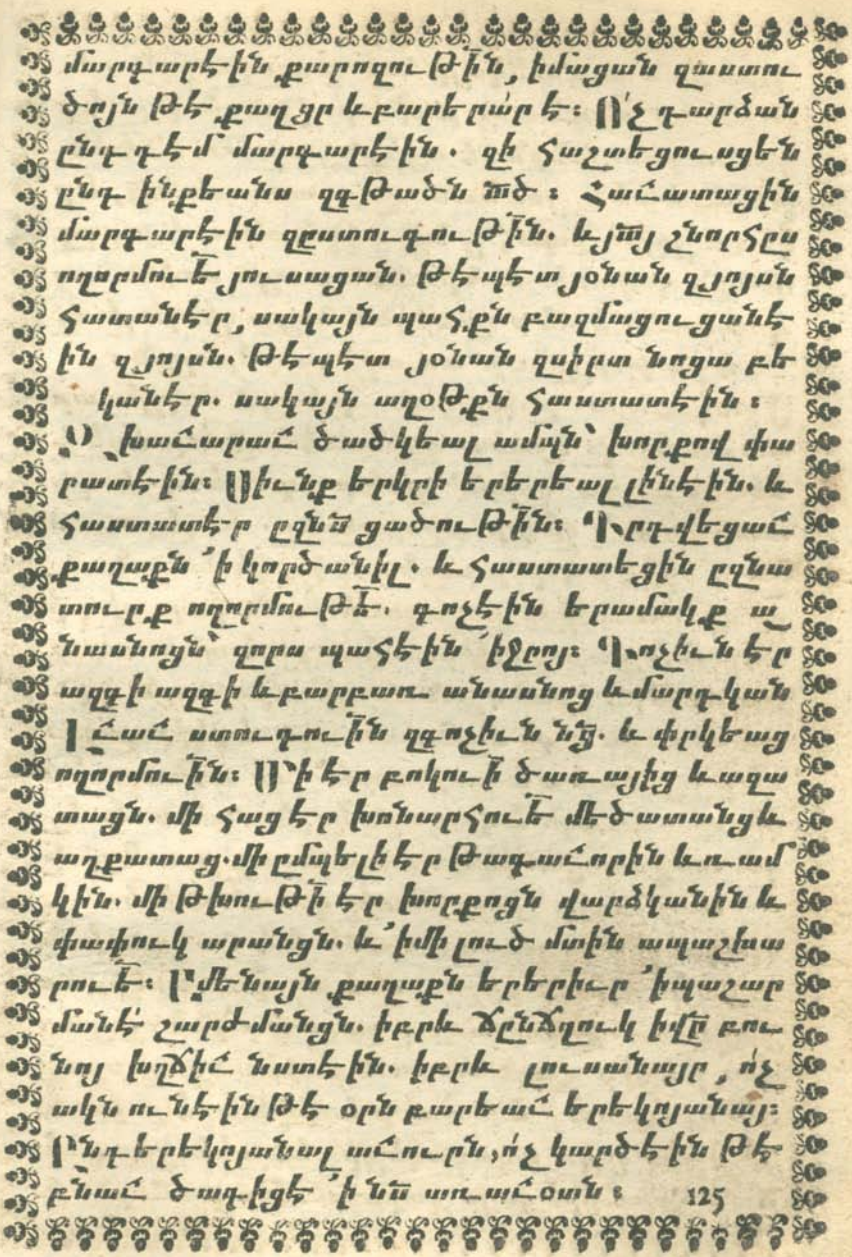 մարգարէին քարոզութի՛ն, իմացան զաստու
ծոյն թէ քաղցր և բարերար է։ Ո՛չ դարձան
ընդ դէմ մարգարէին. զի հաշտեցուսցեն
ընդ ինքեանս զգթածն ա՟ծ։ Հաւատացին
մարգարէին զըստուգութի՟ն. և յա՟յ շնորհըս
ողորմութե՟ յուսացան. թէպէտ յօնան զյոյսն
հատանէր, սակայն պահքն բազմացուցանէ
ին զյոյսն. թէպէտ յօնան զսիրտ նոցա բե
կանէր. սակայն աղօթքն հաստատէին։
Օխաւարաւ ծածկեալ ամպն՝ խորքով փա
րատէին։ Սիւնք երկրի երերեալ լինէին. և
հաստատէր ըզնա՟ ցածութի՟ն։ Գրդվեցաւ
քաղաքն ՚ի կործանիլ. և հաստատեցին ըզնա
տուրք ողորմութե՟. գոչէին երամակք ա
նասնոցն՝ զորս պահէին ՚իջրոյ։ Գոչիւն էր
ազգի ազգի և բարբառ անասնոց և մարդկան
Լւաւ ստուգուի՟ն զգոչիւն նց՟. և փրկեաց
ողորմուի՟ն։ Մի էր բոկուի՟ ծառայից և ազա
տացն. մի հաց էր խոնարհուե՟ մեծատանց և
աղքատաց. մի ըմպելի էր թագաւորին և ռամ
կին. մի թխութի՟ էր խորքոցն վարձկանին և
փափուկ արանցն. և ՚իմի լուծ մտին ապաշխա
րուե՟։ Ամենայն քաղաքն երերիւր ՚իպաշար
մանէ շարժմանցն. իբրև ճընճղուկ իվր՟ բու
նոյ խղճիւ նստէին. իբրև լուսանայր, ո՛չ
ակն ունէին թէ օրն բարեաւ երեկոյանայ։
Ընդ երեկոյանալ աւուրն, ո՛չ կարծէին թէ
բնաւ ծագիցէ ՚ի նա՟ առաւօտն։ 125